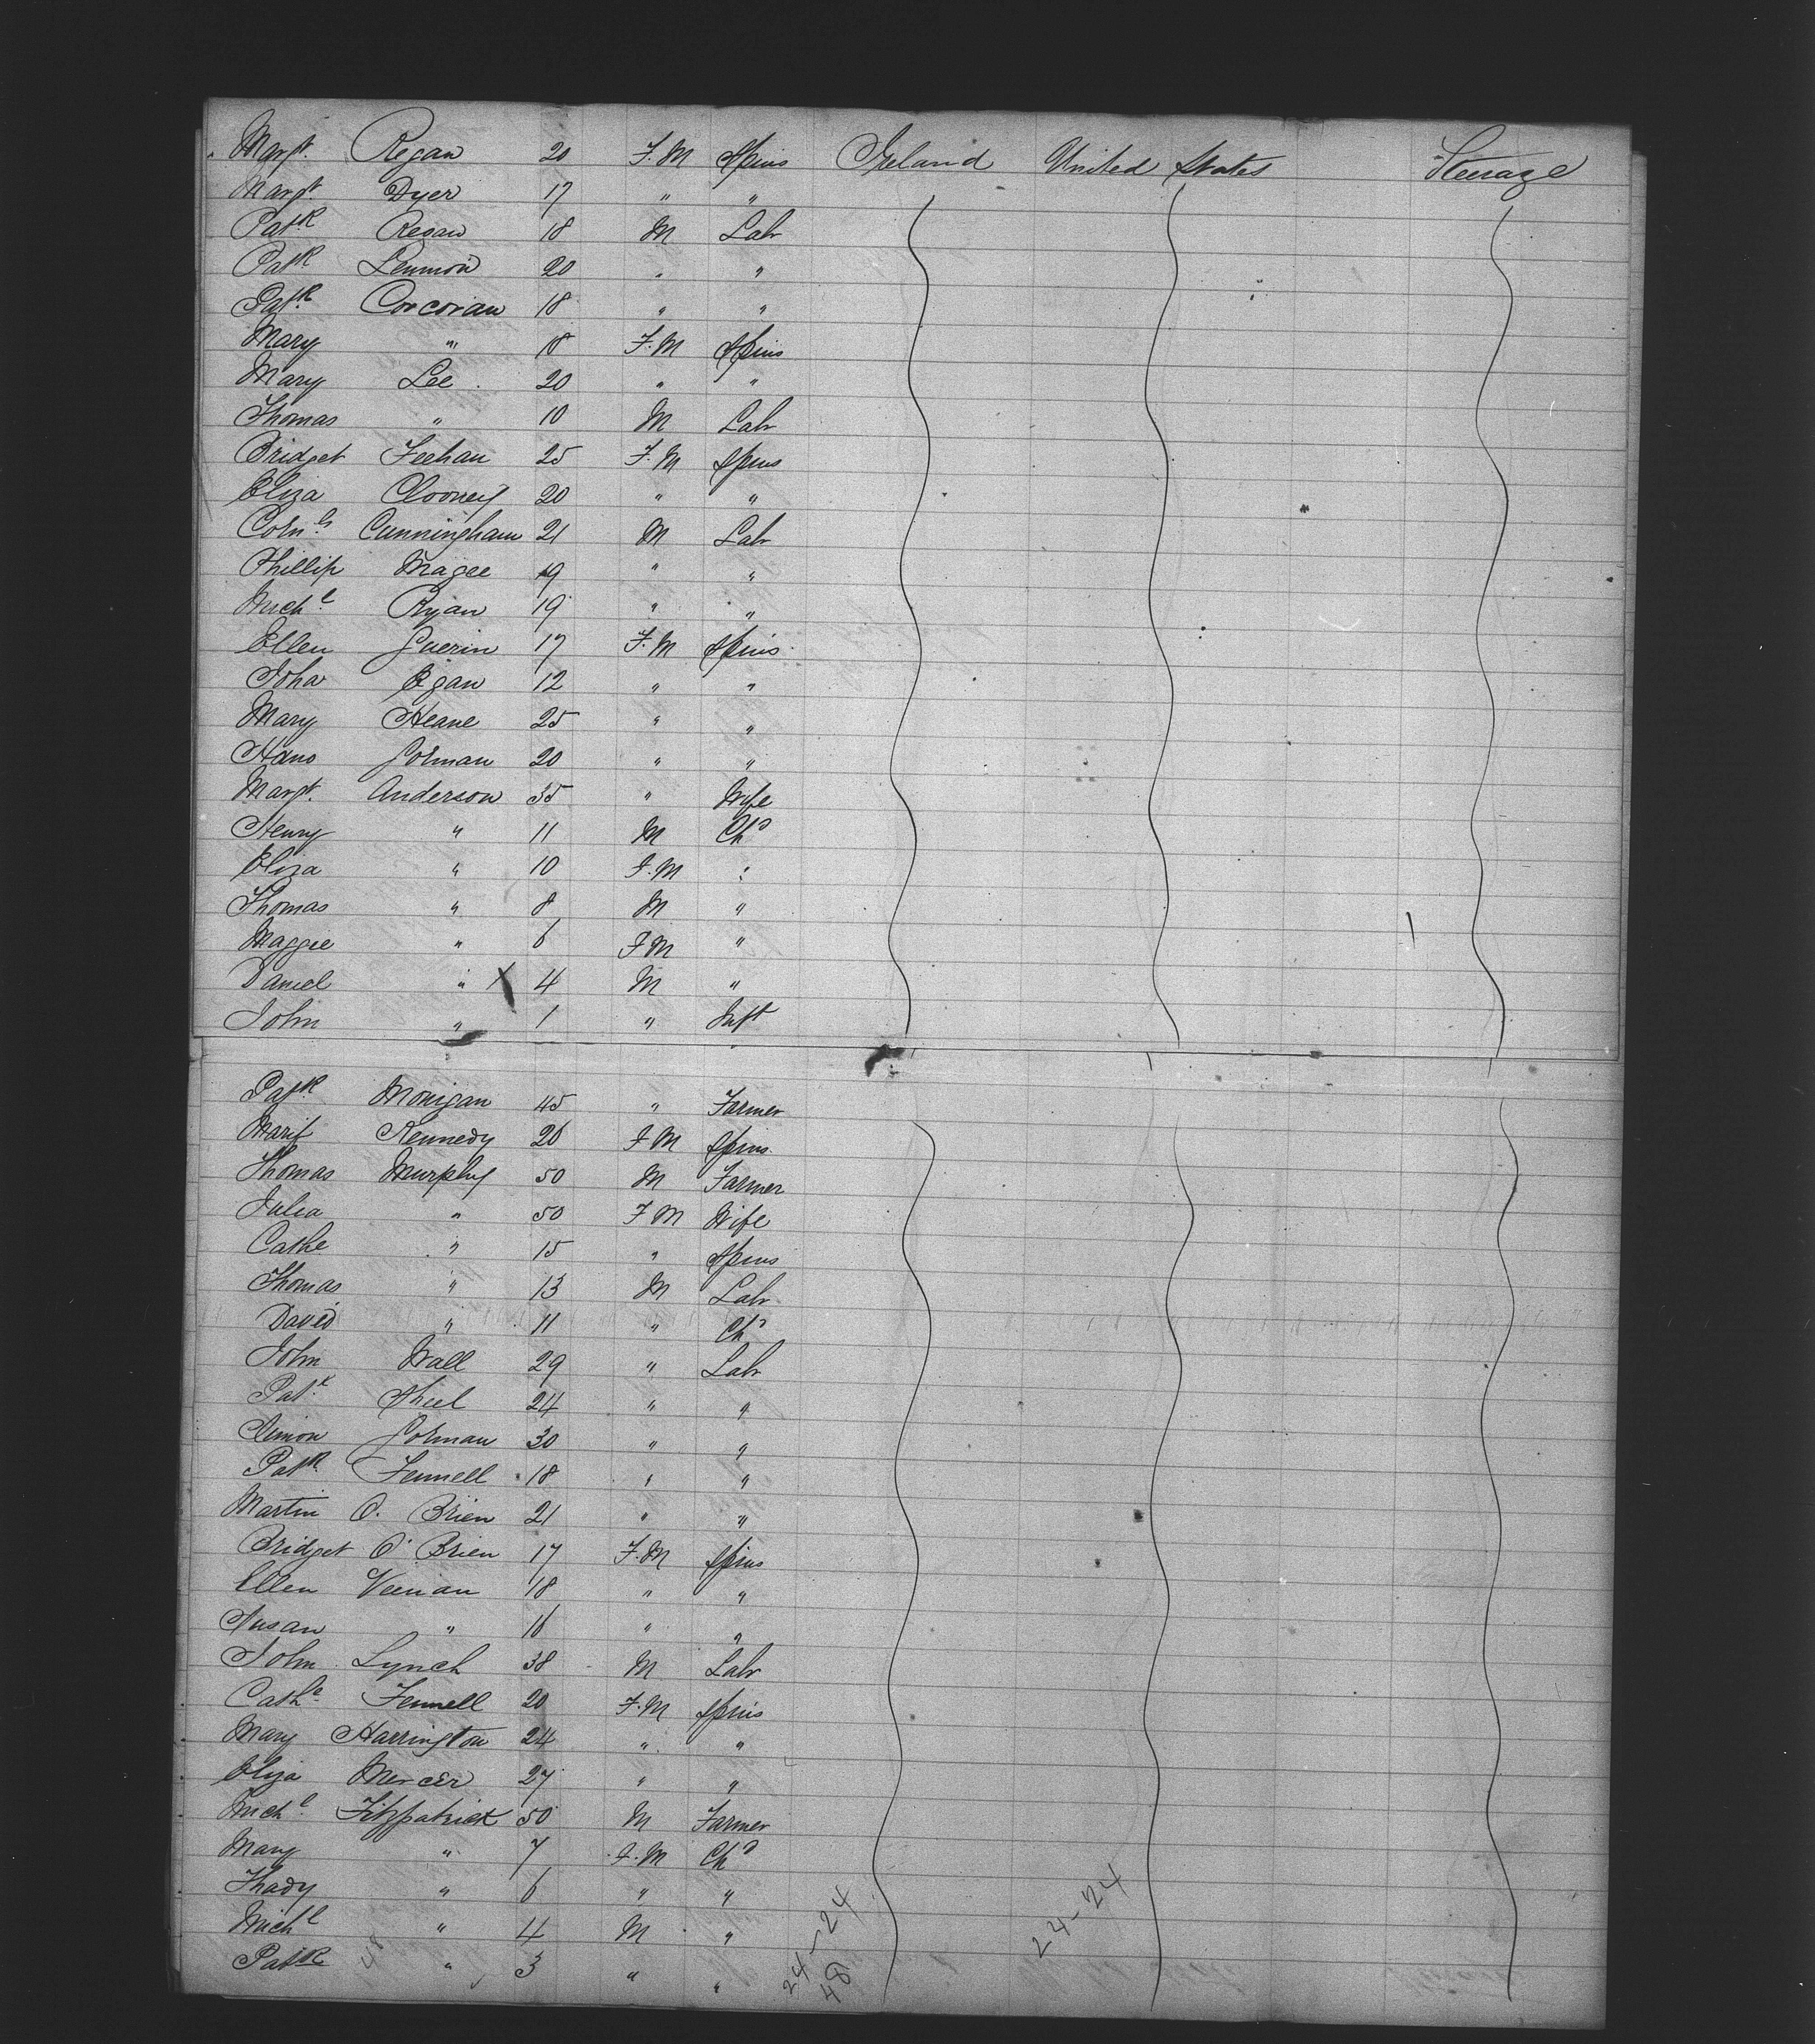 Margt. Regan 20 F.M Spins Ireland United States Steerage
Margt. Dyer 17 " "
Patk Regan 18 M Labr
Patk Lennon 20 " "
Patk Corcoran 18 " "
Mary " 18 F.M Spins
Mary Lee 20 " "
Thomas " 10 M Labr
Bridget Feehan 25 F.M Spins
Eliza Clooney 20 " "
Corns Cunningham 21 M Labr
Phillip Magee 19 " "
Michl Ryan 19 " "
Ellen Guerin 17 F.M Spins
Joha Egan 12 " "
Mary Heane 25 " "
Hano Gorman 20 " "
Margt. Anderson 35 " Wife
Henry " 11 M Chd
Eliza " 10 F.M "
Thomas " 8 M "
Maggie " 6 F M "
Daniel " X 4 M "
John " 1 " Inft
Patk Monigan 45 " Farmer
Kennedy 26 F M Spins
Thomas Murphy 50 M Farmer
Julia " 50 F M Wife
Cathe " 15 " Spins
Thomas " 13 M Labr
David " 11 " Chd
John Wall 29 " Labr
Patk Sheel 24 " "
Simon Gorman 30 " "
Patk Fennell 18 " "
Martin O. Brien 21 " "
Bridget O' Brien 17 F.M Spins
Ellen Veenan 18 " "
Susan " 16 " "
John Lynch 38 M Labr
Cathe Fennell 20 F.M Spins
Mary Harrington 24 " "
Eliza Mercer 27 " "
Michl Fitzpatrick 50 M Farmer
Mary " 7 F.M Chd
Thady " 6 " "
Michl " 4 M "
Patk 48 " 3 " "
24-24
48
24-24